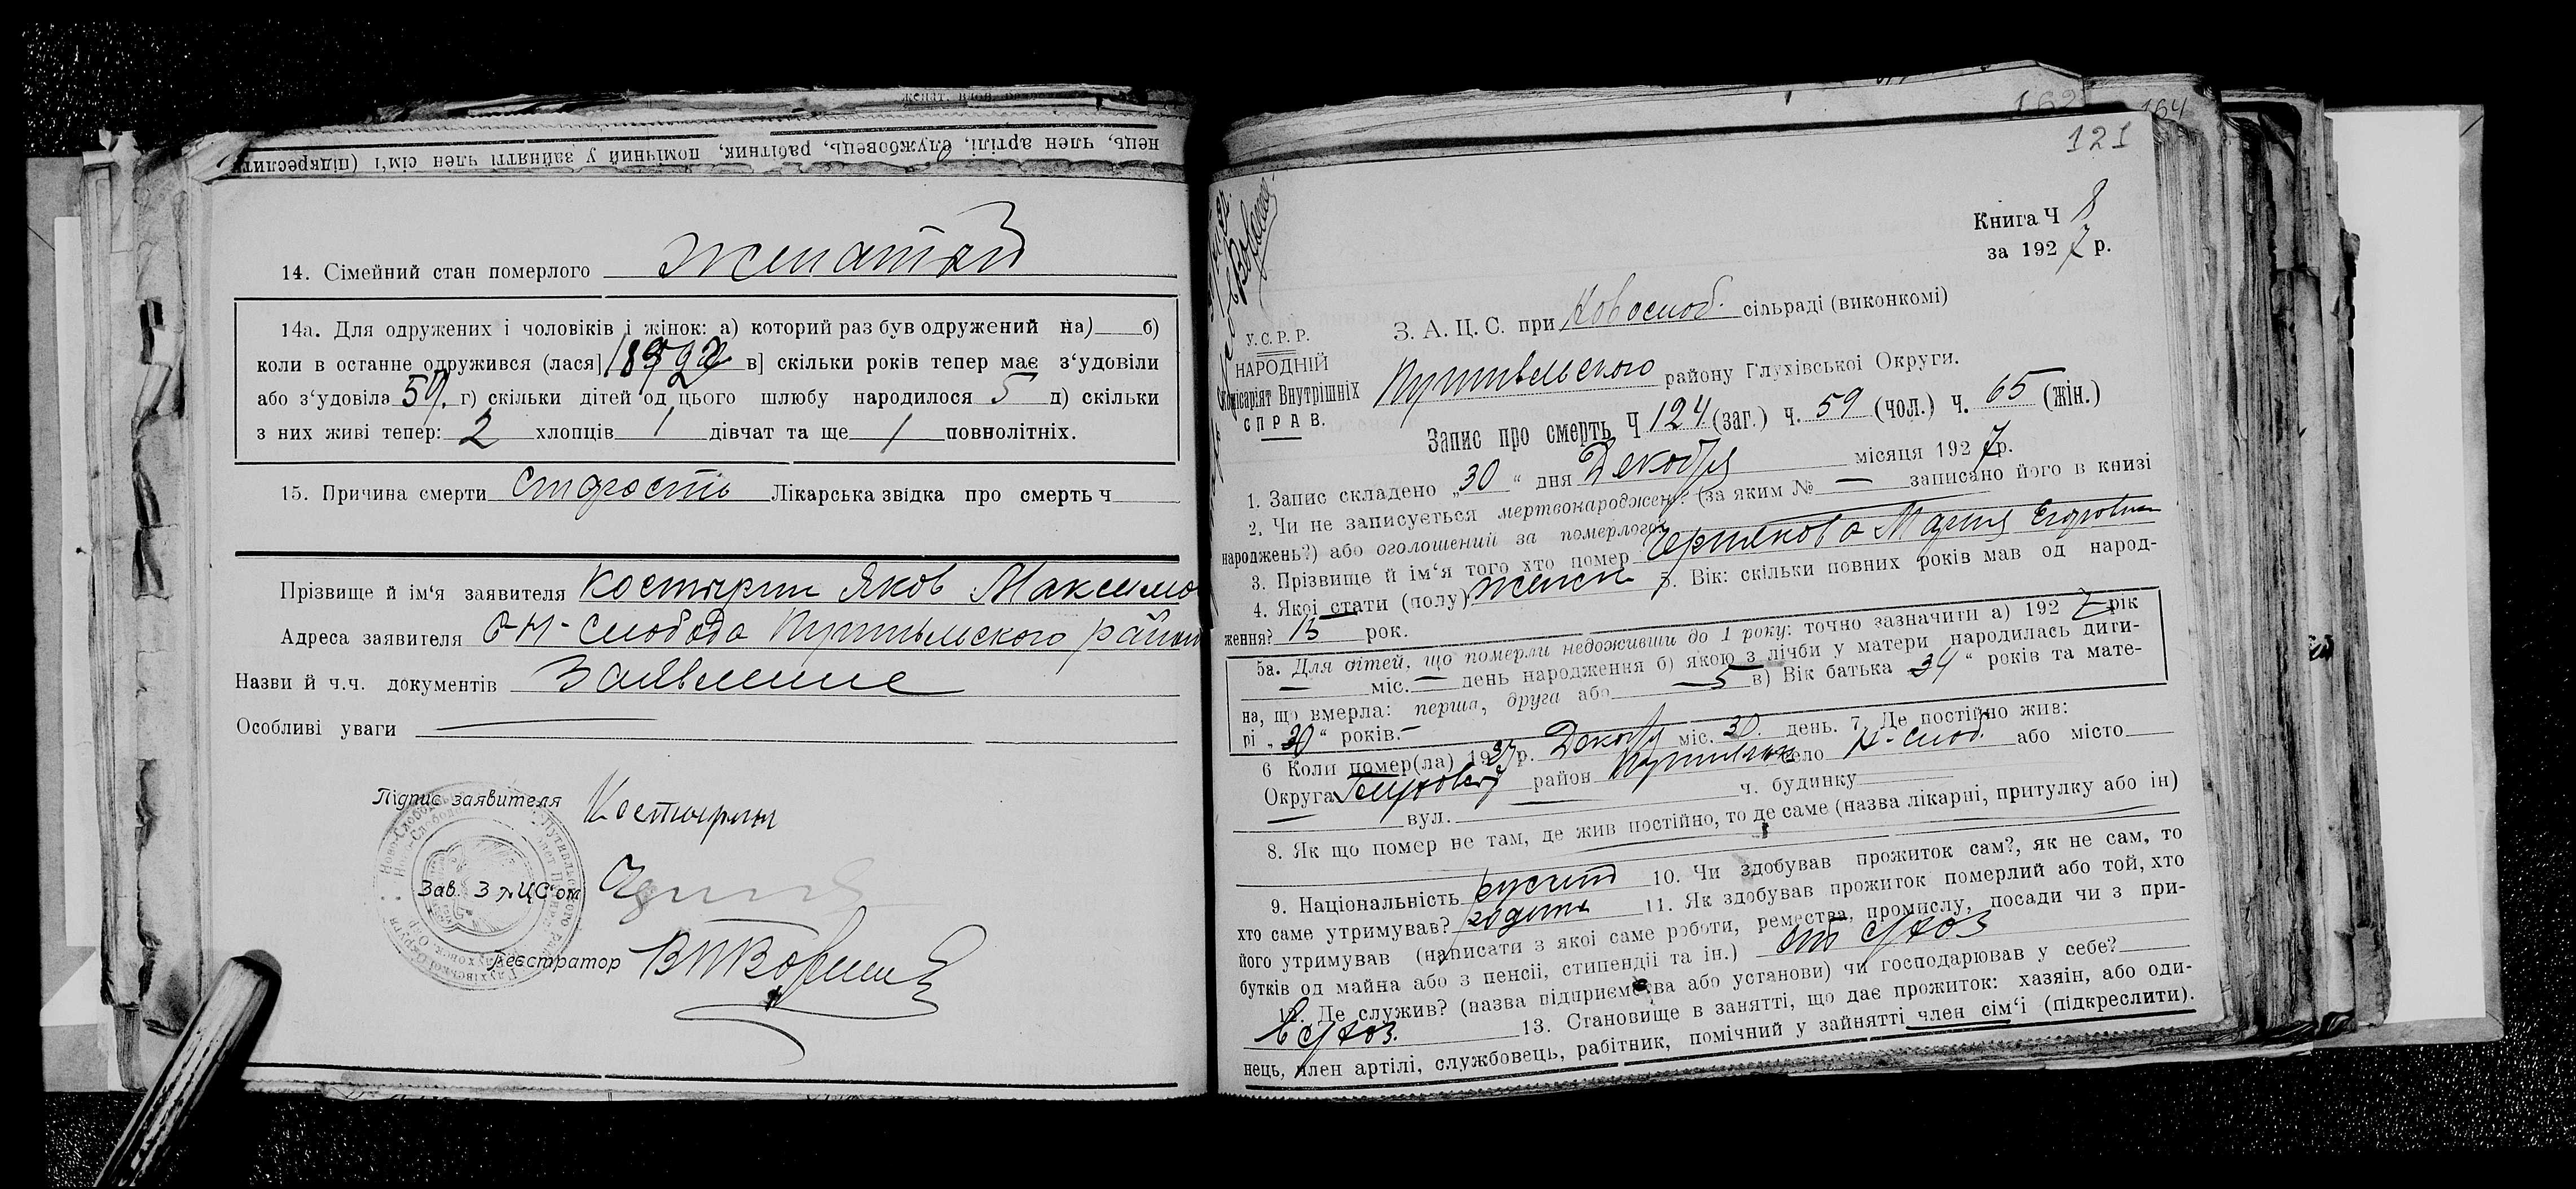 нець, член артілі, службовець, рабітник, помічний у зайнятті член сім'ї (підкреслити
14. Сімейний стан померлого женатой
14а. Для одружених і чоловіків і жінок: а) которий раз був одружений на) б)
коли в останне одружився (лася] в] скільки років тепер має з'удовіли
або з'удовіла 50 г) скільки дітей од цього шлюбу народилося 5 д) скільки
з них живі тепер: 2 хлопців 1 дівчат та ще 1 повнолітніх.
15. Причина смерти старость Лікарська звідка про смерть ч
Прізвище й ім'я заявителя Костырин Яков Максимо
Адреса заявителя Н-Слобода Путивльского район
Назви й ч.ч. документів Заявление
Особливі уваги
Підпис заявителя Костырин
Зав. ЗАЦС'ом
Реєстратор
162 164
121
Книга Ч 8
за 1927 р.
У.С.Р.Р.
НАРОДНІЙ
Комісаріят Внутрішніх
СПРАВ.
З. А. Ц. С. при Новослоб. сільраді (виконкомі)
Путивльского району Глухівської Округи.
Запис про смерть Ч 124 (заг.) ч. 59 (чол.) ч. 65 (жін.)
1. Запис складено „30“ дня Декабря місяця 1927 р.
2. Чи не записується мертвонароджен? (за яким № — записано його в книзі
народжень?) або оголошений за померлого
3. Прізвище й ім'я того хто помер Мария Егоровна
4. Якої статі (полу) женск 5. Вік: скільки повних років мав од народ-
ження? рок.
5а. Для дітей, що померли недоживши до 1 року: точно зазначити а) 1927 рік
— міс. — день народження б) якою з лічби у матери народилась дити-
на, що вмерла: перша, друга або 5 в) Вік батька 34“ років та мате-
рі „30“ років.
6 Коли помер(ла) 1927 р. Декабря міс. 30. день. 7. Де постійно жив:
Округа Глуховск район Путивльск село Н-слоб. або місто
вул. ч. будинку
8. Як що помер не там, де жив постійно, то де саме (назва лікарні, притулку або ін)
9. Національність русский 10. Чи здобував прожиток сам?, як не сам, то
хто саме утримував? родители 11. Як здобував прожиток померлий або той, хто
його утримував (написати з якої саме роботи, ремества, промислу, посади чи з при-
бутків од майна або з пенсії, стипендії та ін.) от с/хоз
12. Де служив? (назва підприємства або установи) чи господарював у себе?
в с/хоз. 13. Становище в занятті, що дає прожиток: хазяїн, або оди-
нець, член артілі, службовець, рабітник, помічний у зайнятті член сім'ї (підкреслити).